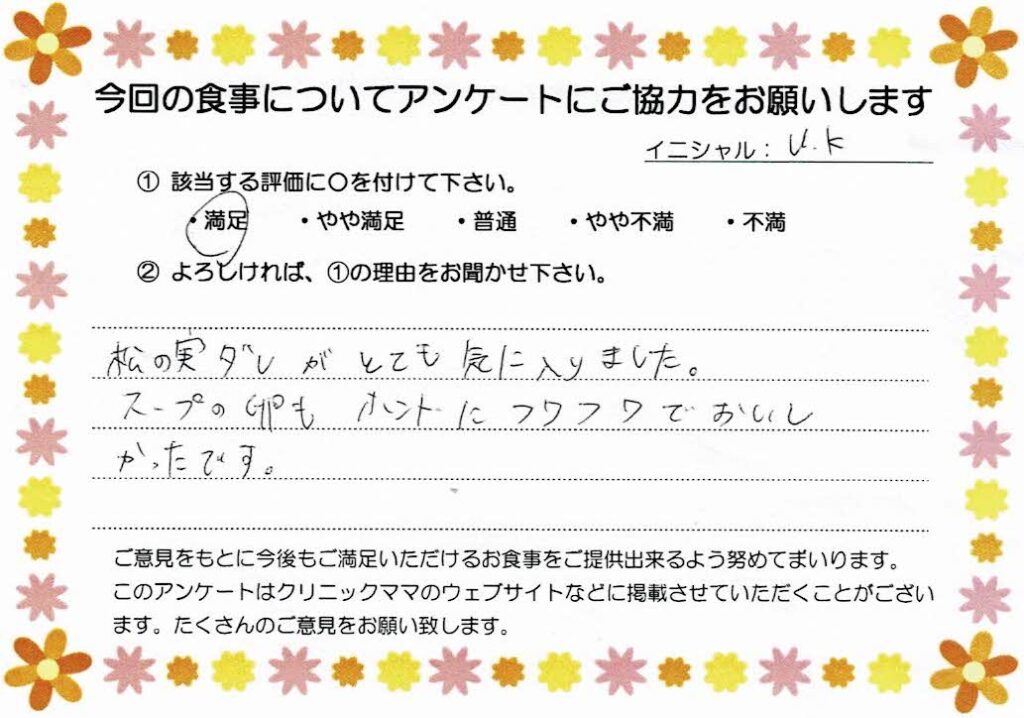 今回の食事についてアンケートにご協力をお願いします
イニシャル: U.K
① 該当する評価に〇を付けて下さい。
・満足 ・やや満足 ・普通 ・やや不満 ・不満
② よろしければ、①の理由をお聞かせ下さい。
松の実ダレがとても気に入りました。
スープの卵もホントにフワフワでおいし
かったです。
ご意見をもとに今後もご満足いただけるお食事をご提供出来るよう努めてまいります。
このアンケートはクリニックママのウェブサイトなどに掲載させていただくことがござい
ます。たくさんのご意見をお願い致します。